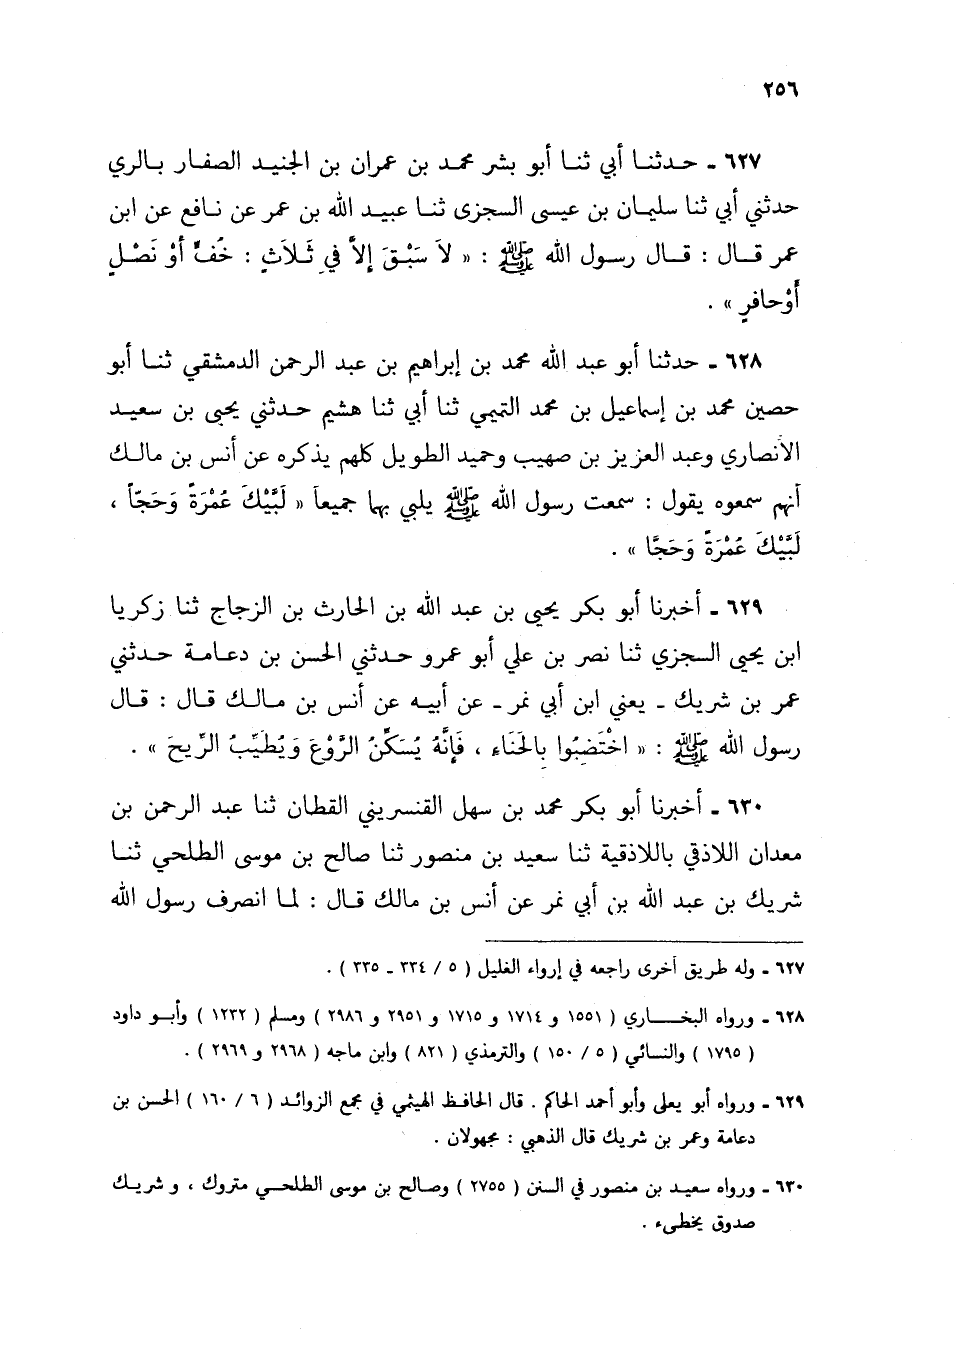 ٢٥٦
٦٢٧ ـ حدثنا أبي ثنا أبو بشر محمد بن عمران بن الجنيد الصفار بالري
حدثني أبي ثنا سليمان بن عيسى السجزى ثنا عبيد الله بن عمر عن نافع عن ابن
عمر قال : قال رسول الله ﷺ : « لاَ سَبْقَ إلاَّ في ثَلاَثٍ : خُفٍّ أَوْ نَصْلٍ
أَوْحافرٍ » .
٦٢٨ ـ حدثنا أبو عبد الله محمد بن إبراهيم بن عبد الرحمن الدمشقي ثنا أبو
حصين محمد بن إسماعيل بن محمد التميمي ثنا أبي ثنا هشيم حدثني يحيى بن سعيد
الأنصاري وعبد العزيز بن صهيب وحميد الطويل كلهم يذكره عن أنس بن مالك
أنهم سمعوه يقول : سمعت رسول الله ﷺ يلبي بها جميعاً « لَبَّيْكَ عُمْرَةً وَحَجّاً ،
لَبَّيْكَ عُمْرَةً وَحَجًّا » .
٦٢٩ ـ أخبرنا أبو بكر يحيى بن عبد الله بن الحارث بن الزجاج ثنا زكريا
ابن يحيى السجزي ثنا نصر بن علي أبو عمرو حدثني الحسن بن دعامة حدثني
عمر بن شريك ـ يعني ابن أبي نمر ـ عن أبيه عن أنس بن مالك قال : قال
رسول الله ﷺ : « اخْتَضِبُوا بِالحَناء ، فَإنَّهُ يُسَكِّنُ الرَّوْعَ وَيُطَيِّبُ الرِّيحَ » .
٦٣٠ ـ أخبرنا أبو بكر محمد بن سهل القنسريني القطان ثنا عبد الرحمن بن
معدان اللاذقي باللاذقية ثنا سعيد بن منصور ثنا صالح بن موسى الطلحي ثنا
شريك بن عبد الله بن أبي نمر عن أنس بن مالك قال : لما انصرف رسول الله
٦٢٧ ـ وله طريق أخرى راجعه في إرواء الغليل ( ٥ / ٣٣٤ ـ ٣٣٥ ) .
٦٢٨ ـ ورواه البخاري ( ١٥٥١ و ١٧١٤ و ١٧١٥ و ٢٩٥١ و ٢٩٨٦ ) ومسلم ( ١٢٣٢ ) وأبو داود
( ١٧٩٥ ) والنسائي ( ٥ / ١٥٠ ) والترمذي ( ٨٢١ ) وابن ماجه ( ٢٩٦٨ و ٢٩٦٩ ) .
٦٢٩ ـ ورواه أبو يعلى وأبو أحمد الحاكم . قال الحافظ الهيثمي في مجمع الزوائد ( ٦ / ١٦٠ ) الحسن بن
دعامة وعمر بن شريك قال الذهبي : مجهولان .
٦٣٠ ـ ورواه سعيد بن منصور في السنن ( ٢٧٥٥ ) وصالح بن موسى الطلحي متروك ، و شريك
صدوق يخطىء .